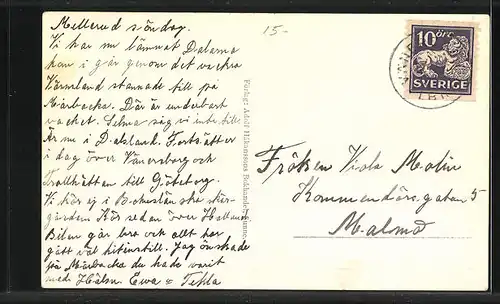 Mellerud söndag.
Vi har nu lämnat Dalarna
kom i går genom det vackra
Värmland stannade till på
Mårbacka. Där är underbart
vacket. Selma såg vi inte till.
Är nu i Dalsland. Fortsätter
i dag över Vänersborg och
Trollhättan till Göteborg.
Vi kör ej i Bohuslänska skär-
gården Kör sedan över Halland
Bilen går bra och allt har
gått väl hitintill. Jag önskade
på Mårbacka du hade varit
med. Hälsn. Ewa = Tekla
15-
Förlag: Adolf Håkanssons Bokhandel
10 ÖRE
SVERIGE
Fröken Viola Molin
Kommendörsgatan 5
Malmö